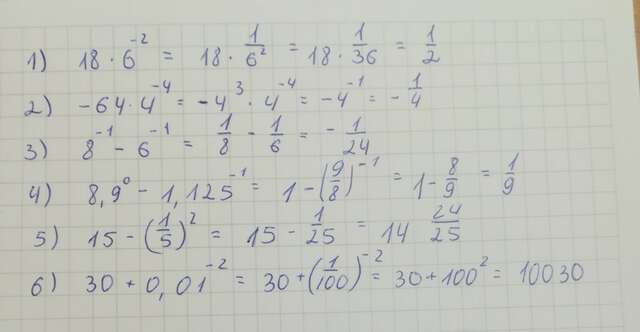 1) 18 · 6⁻² = 18 · 1/6² = 18 · 1/36 = 1/2
2) -64 · 4⁻⁴ = -4³ · 4⁻⁴ = -4⁻¹ = - 1/4
3) 8⁻¹ - 6⁻¹ = 1/8 - 1/6 = - 1/24
4) 8,9⁰ - 1,125⁻¹ = 1 - (9/8)⁻¹ = 1 - 8/9 = 1/9
5) 15 - (1/5)² = 15 - 1/25 = 14 24/25
6) 30 + 0,01⁻² = 30 + (1/100)⁻² = 30 + 100² = 10030